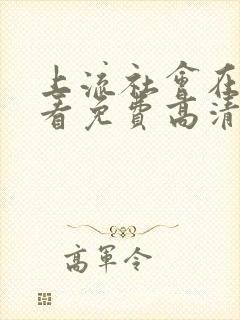 上流社會在
看免費高清
高軍令